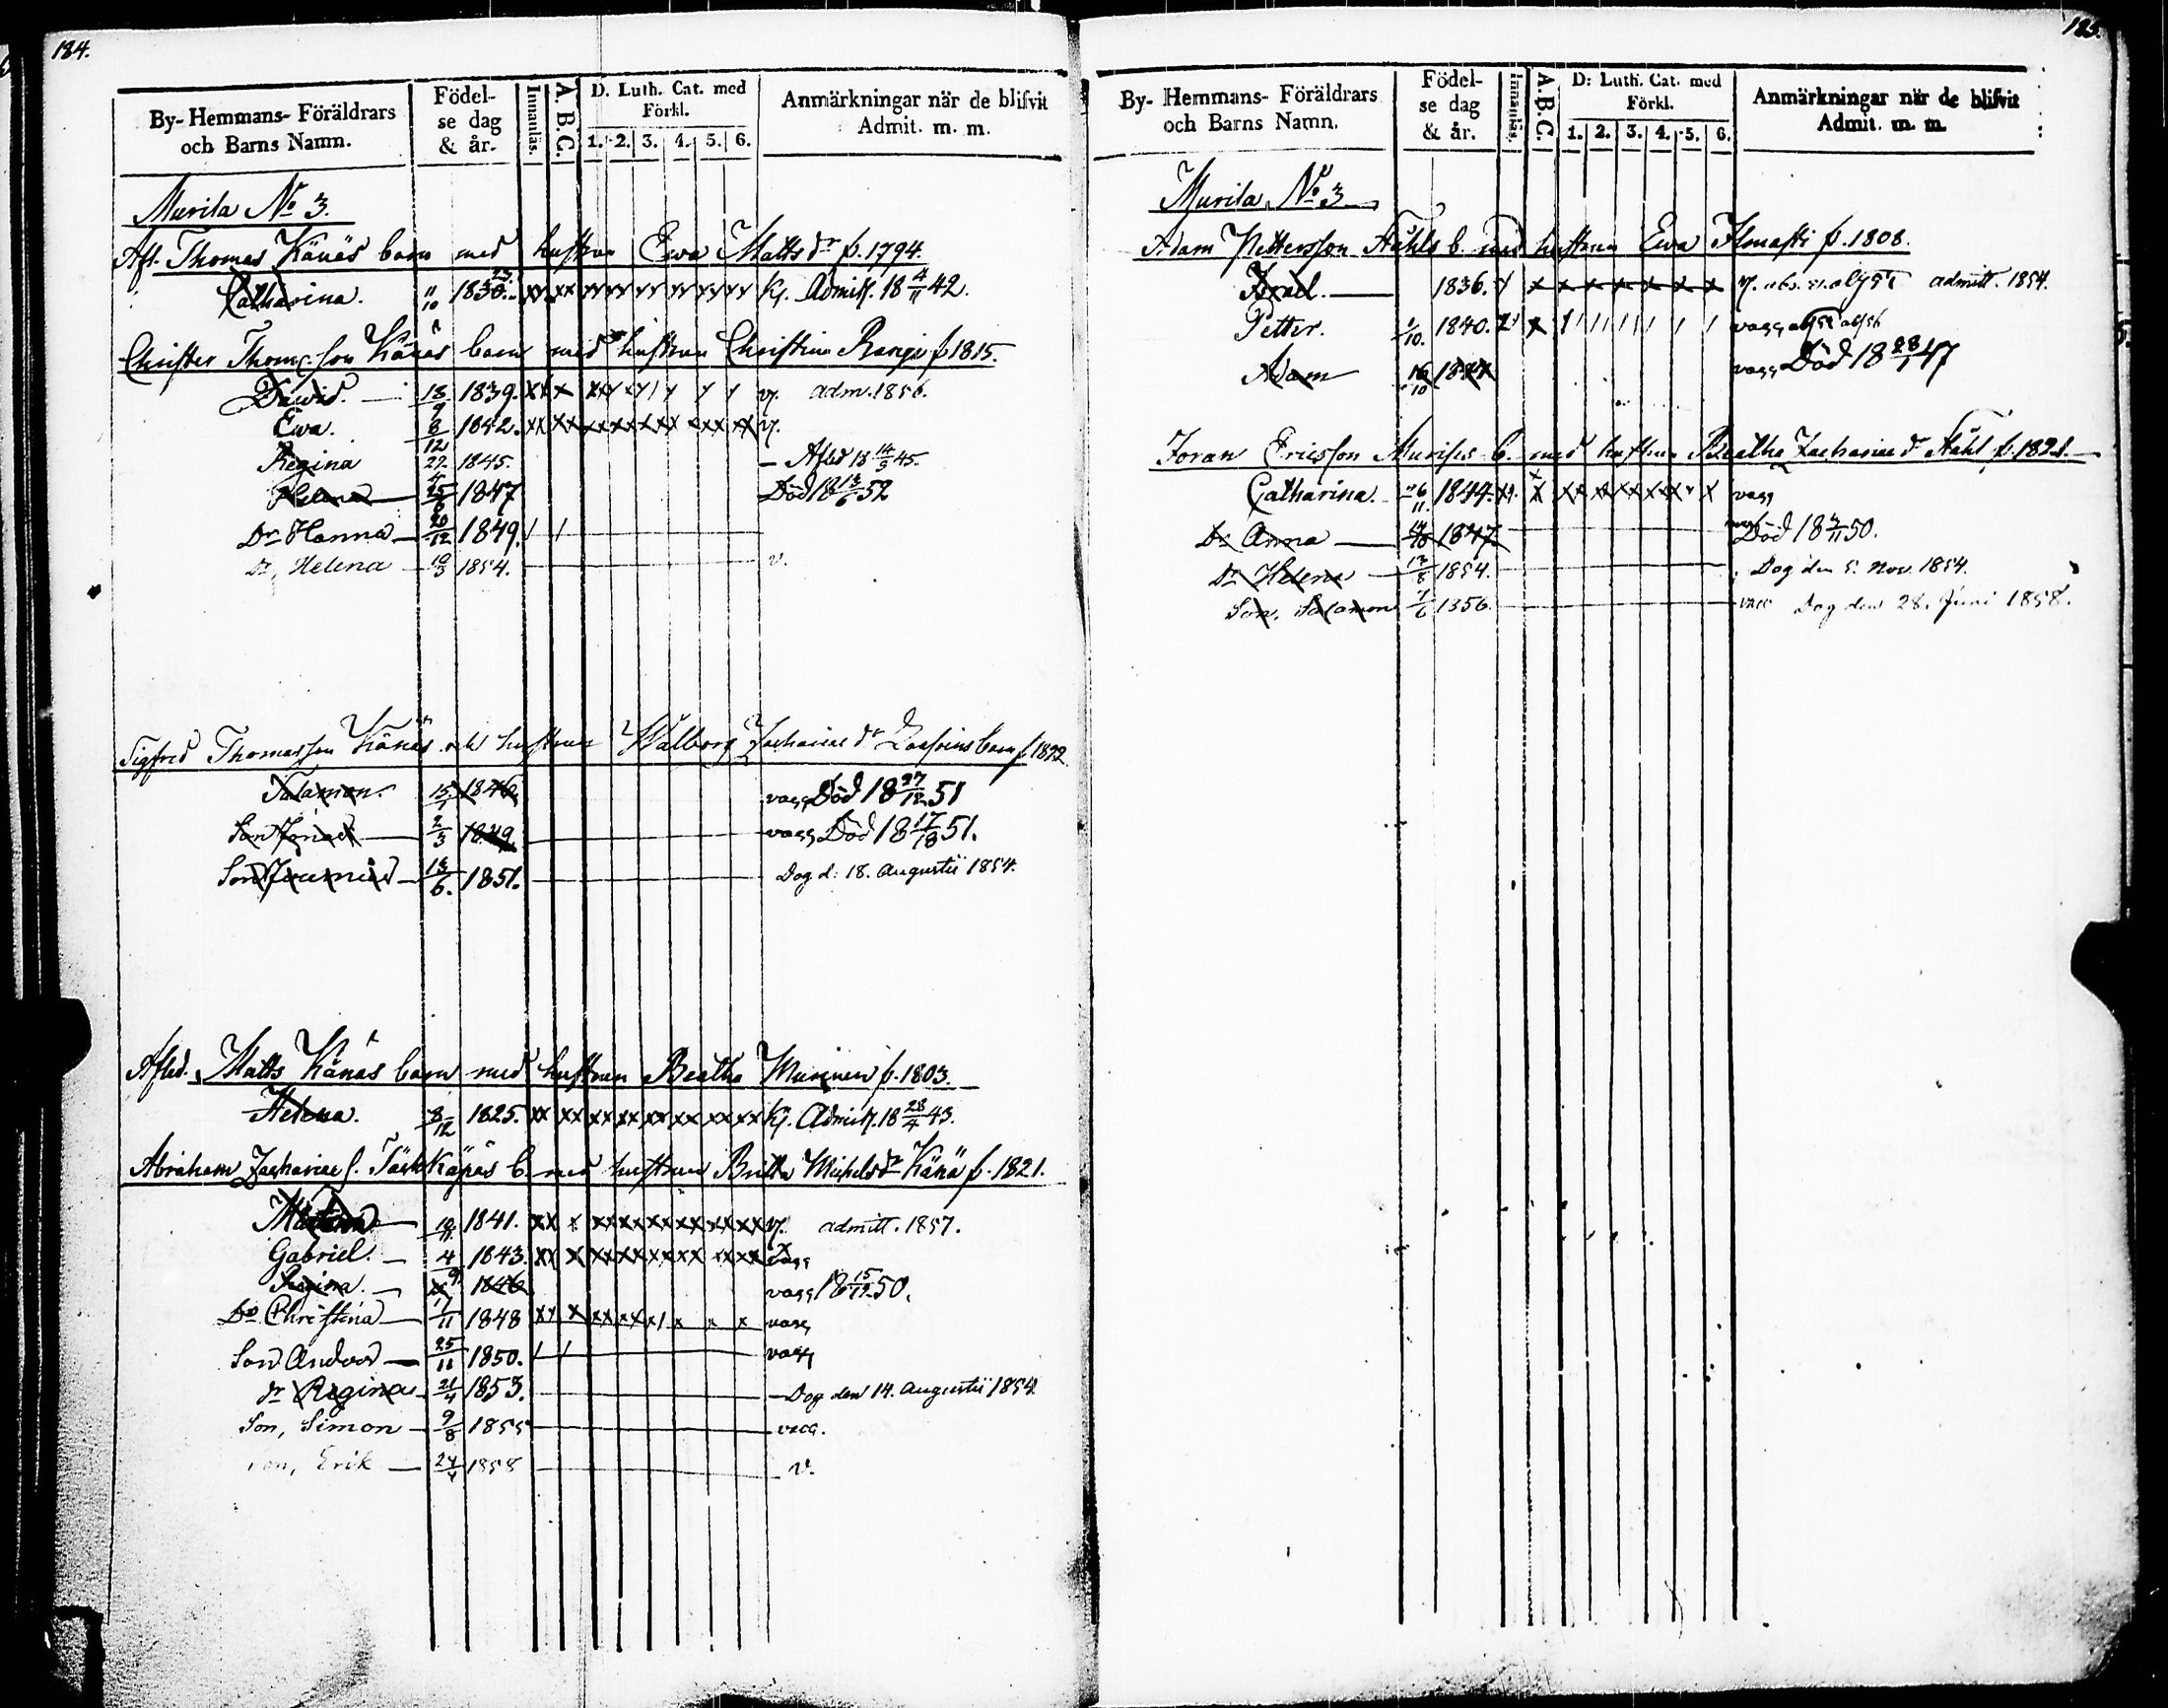 184.
By- Hemmans- Föräldrars och Barns Namn.
Födelse dag & år.
Innanläs.
A. B. C.
D. Luth. Cat. med Förkl.
1. 2. 3. 4. 5. 6.
Anmärkningar när de blifvit Admit. m. m.
Murila No 3.
Afl. Thomas Känäs barn med hustrun Ewa Matts dr f. 1794.
Catharina. 11/10 1830. Admitt. 18 4/11 42.
Christer Thoms. son Känäs barn med hustrun Christina f 1815.
David. 18/9 1839. adm. 1856.
Ewa. 8/12 1842.
Regina 1845. Afled 18 14/9 45.
Helena 25/6 1847 Död 18 13/6 52
Dr Hanna 20/12 1849.
Dr, Helena 10/3 1854. v.
Sigfred Thomasson Känäs och hustrun Walborg Zachariae dr barn f. 1822
Salamon. 15/1 1846 vacc Död 18 27/12 51
Son Jonas 2/3 1849 vacc Död 18 17/8 51.
Son 13/6. 1851. Dog d. 18. Augustii 1854.
Afled. Matts Känäs barn med hustrun Beatha Murinen f. 1803.
Helena. 8/12 1825. Kj. Admitt. 18 23/4 43.
Abraham Zachariae s. Känäs b. med hustrun Britta Michelsdr Känä f. 1821.
1841. admitt. 1857.
Gabriel. 4/9 1843. vacc
Regina. 1846 vacc 18 15/12 50.
Dr Christina 17/11 1848 vacc
Son Andors 25/11 1850. vacc
dr Regina 21/4 1853. Dog den 14. Augustii 1854.
Son, Simon 9/8 1855 vacc.
son, Erik 24/4 1858 v.
185.
By- Hemmans- Föräldrars och Barns Namn.
Födelse dag & år.
Innanläs.
A. B. C.
D. Luth. Cat. med Förkl.
1. 2. 3. 4. 5. 6.
Anmärkningar när de blifvit Admit. m. m.
Murila No 3.
Adam Pettersson Ståhls b. med hustrun Ewa Ilmasti f. 1808.
Israel. 1836. admitt. 1854.
Petter. 1/10. 1840. vacc
Adam 16/10 1847 vacc Död 18 28/1 47
Joran Ericsson Murises b. med hustrun Beatha Zachariae dr Ståhl f. 1821.
Catharina. 26/11. 1844. vacc
Dr Anna 1847 Död 18 4/11 50.
Dr Helena 12/8 1854. Dog den 5. Nov. 1854.
Son, Salamon 7/6 1856. vacc Dog den 28. Juni 1858.